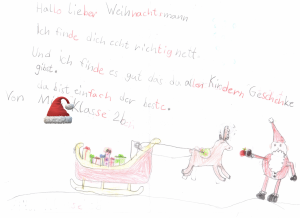 Hallo Lieber Weihnachtsmann
Ich finde dich echt richtig nett.
Und ich finde es gut das du allen Kindern Geschenke
gibst.
du bist einfach der beste.
Von Klasse 2b.